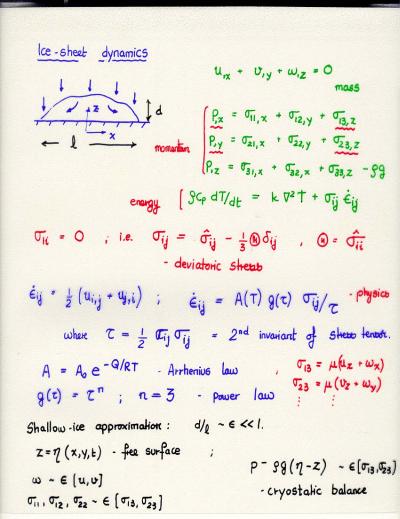 Ice-sheet dynamics
z
x
d
l
u,x + v,y + w,z = 0
mass
momentum
p,x = σ11,x + σ12,y + σ13,z
p,y = σ21,x + σ22,y + σ23,z
p,z = σ31,x + σ32,x + σ33,z - ρg
energy
ρcp dT/dt = k ∇²T + σij ε̇ij
σii = 0 ; i.e. σij = σ̂ij - 1/3 Ⓗ δij , Ⓗ = σ̂ii
- deviatoric stress
ε̇ij = 1/2 (ui,j + uj,i) ; ε̇ij = A(T) g(τ) σij/τ - physics
where τ = 1/2 σij σij = 2nd invariant of stress tensor.
A = A0 e^-Q/RT - Arrhenius law
σ13 = μ(uz + wx)
g(τ) = τ^n ; n = 3 - power law
σ23 = μ(vz + wy)
⋮ ⋮
Shallow-ice approximation: d/l ~ ε << 1.
z = η(x,y,t) - free surface ;
p - ρg(η-z) ~ ε[σ13,σ23]
w ~ ε[u,v]
- cryostatic balance
σ11, σ12, σ22 ~ ε[σ13, σ23]